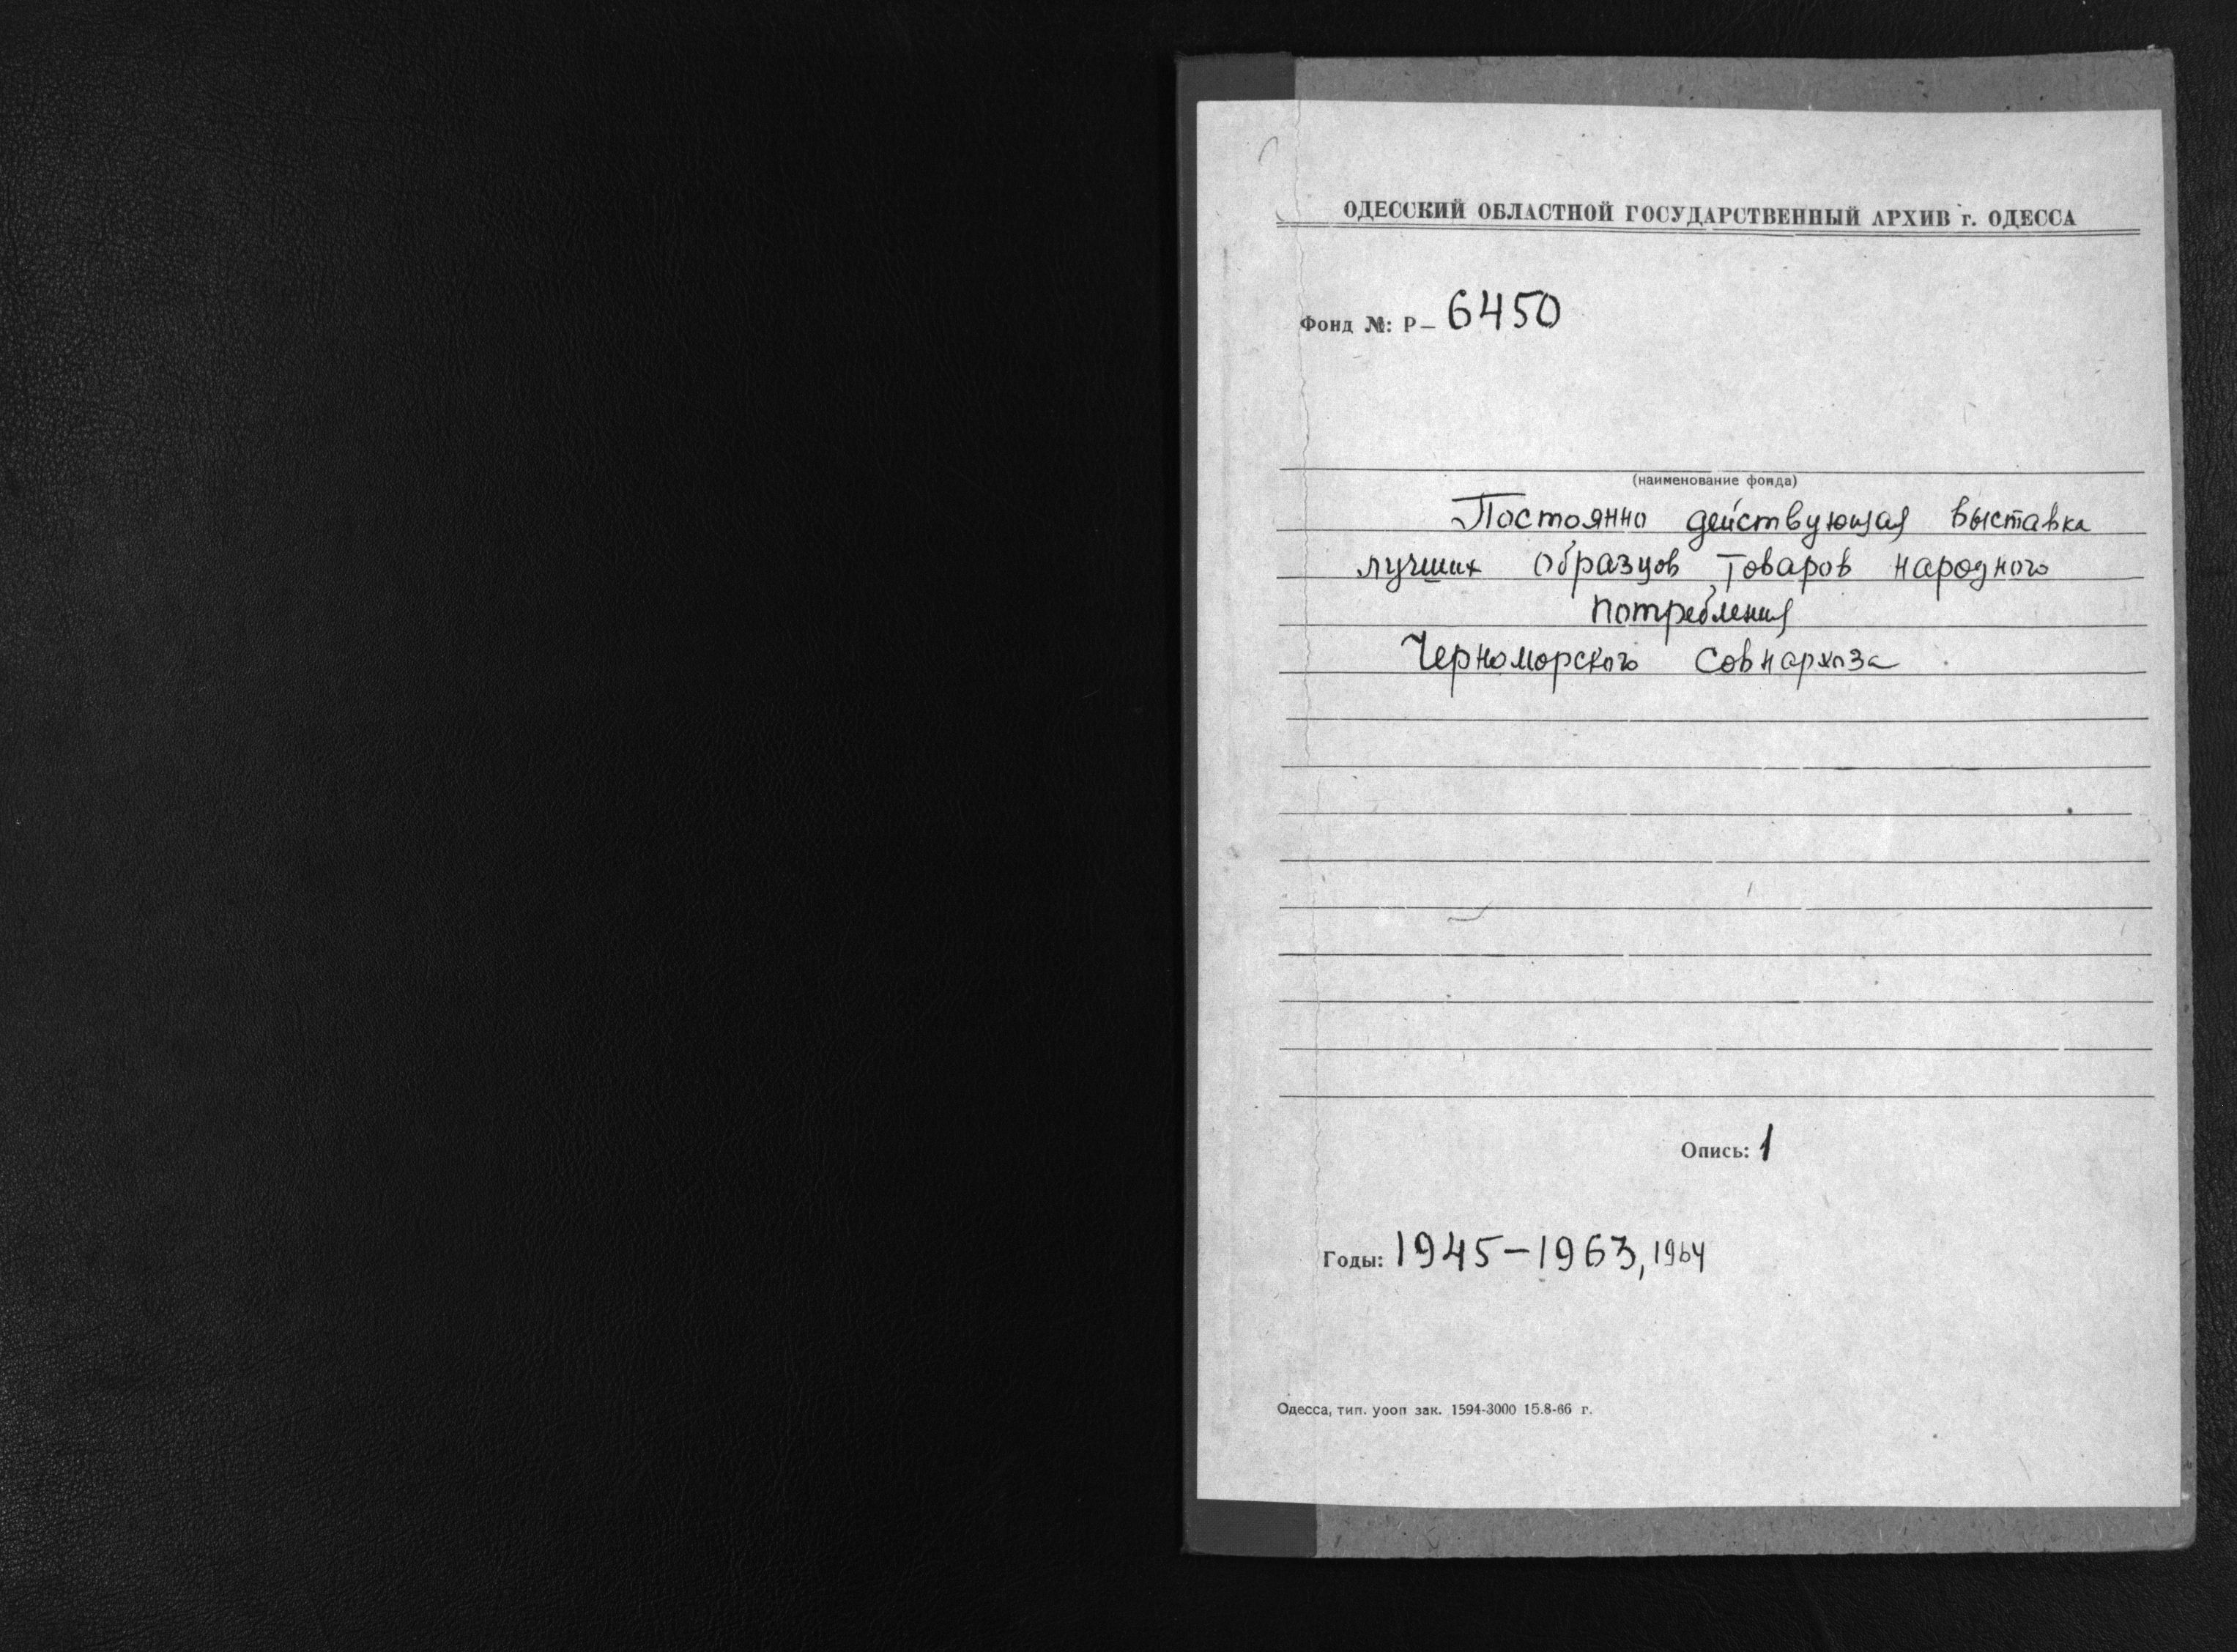 ОДЕССКИЙ ОБЛАСТНОЙ ГОСУДАРСТВЕННЫЙ АРХИВ г. ОДЕССА
Фонд №: Р– 6450
(наименование фонда)
Постоянно действующая выставка
лучших образцов товаров народного
потребления
Черноморского совнархоза
Опись: 1
Годы: 1945–1963, 1964
Одесса, тип. уооп зак. 1594-3000 15.8-66 г.